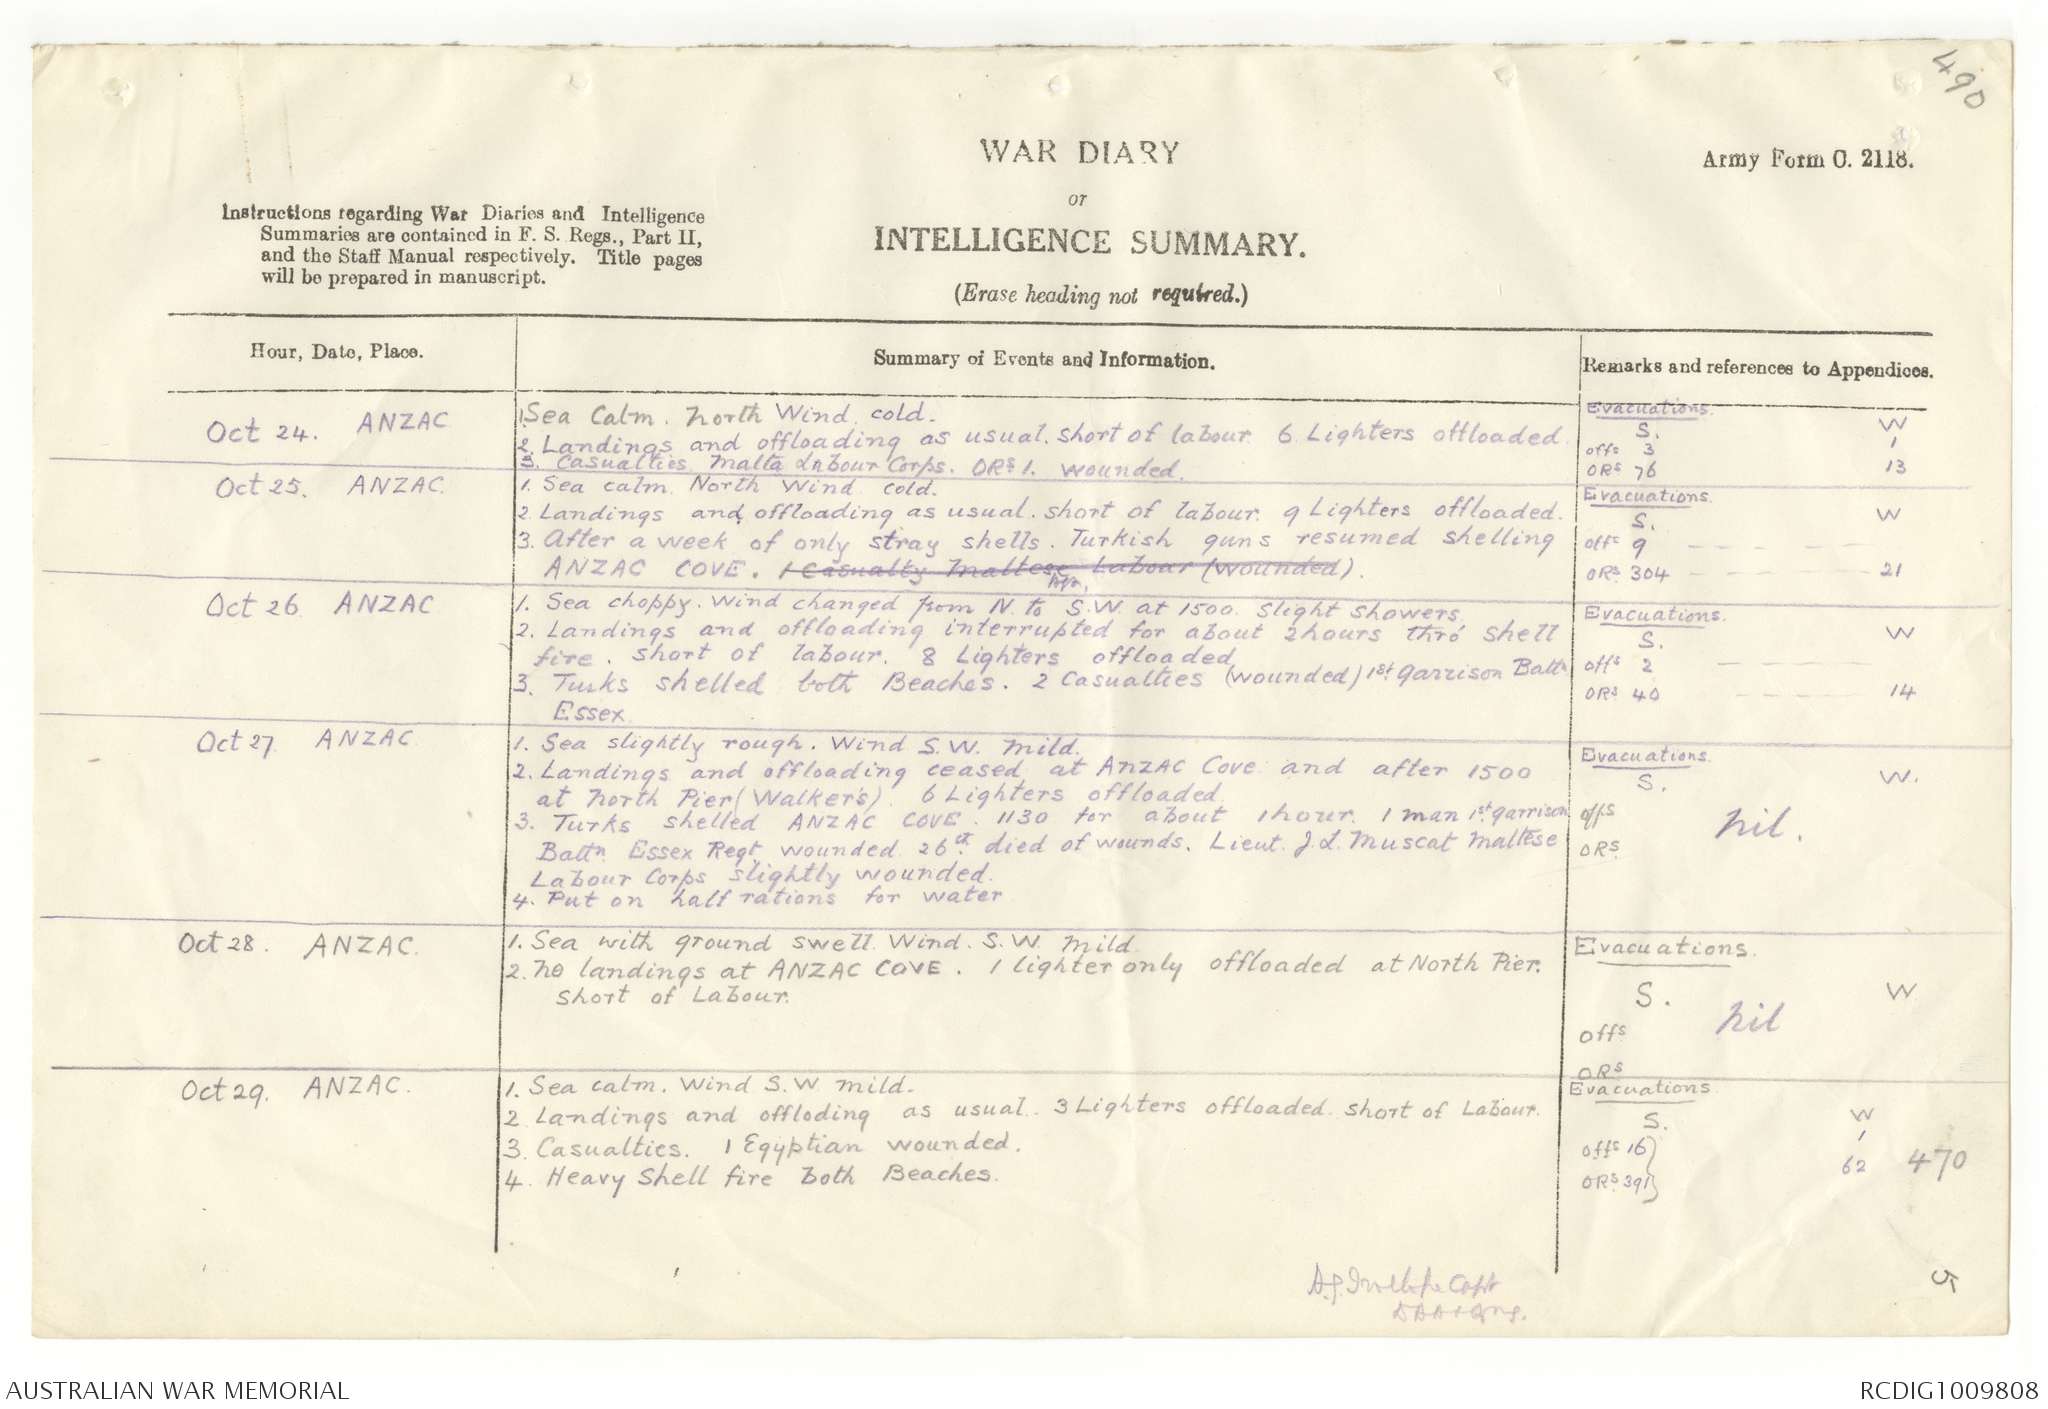 490
WAR DIARY
or
INTELLIGENCE SUMMARY.
(Erase heading not required.)
Army Form C. 2118.
Instructions regarding War Diaries and Intelligence
Summaries are contained in F. S. Regs., Part II,
and the Staff Manual respectively. Title pages
will be prepared in manuscript.
Hour, Date, Place.
Summary of Events and Information.
Remarks and references to Appendices.
Oct 24. ANZAC
1. Sea Calm. North Wind. cold.
2. Landings and offloading as usual. short of labour. 6 Lighters offloaded.
3. Casualties Malta Labour Corps. ORs 1. wounded.
Evacuations.
S. W
offs 3 1
ORs 76 13
Oct 25. ANZAC.
1. Sea calm. North Wind cold.
2. Landings and offloading as usual. short of labour. 9 Lighters offloaded.
3. After a week of only stray shells. Turkish guns resumed shelling
ANZAC COVE. 1 Casualty Maltese Labour (wounded).
Evacuations.
S. W
offs 9 — — — — —
ORs 304 — — — — 21
Oct 26. ANZAC
1. Sea choppy. Wind changed from N. to S.W. at 1500. slight showers.
2. Landings and offloading interrupted for about 2 hours thro' shell
fire. short of labour. 8 Lighters offloaded
3. Turks shelled both Beaches. 2 Casualties (wounded) 1st Garrison Battn
Essex.
Evacuations.
S. W
offs 2 — — — — —
ORs 40 — — — — 14
Oct 27. ANZAC
1. Sea slightly rough. Wind S.W. mild.
2. Landings and offloading ceased at ANZAC Cove. and after 1500
at North Pier (Walker's). 6 Lighters offloaded.
3. Turks shelled ANZAC COVE. 1130 for about 1 hour. 1 man 1st Garrison
Battn. Essex Regt. wounded 26th died of wounds. Lieut. J.L. Muscat Maltese
Labour Corps slightly wounded.
4. Put on half rations for water
Evacuations.
S. W.
offs
nil.
ORs
Oct 28. ANZAC.
1. Sea with ground swell. Wind. S.W. mild
2. no landings at ANZAC COVE. 1 lighter only offloaded at North Pier.
short of Labour.
Evacuations.
S. W
nil
offs
ORs
Oct 29. ANZAC.
1. Sea calm. Wind S.W mild.
2. Landings and offloding as usual. 3 Lighters offloaded. short of Labour.
3. Casualties. 1 Egyptian wounded.
4. Heavy Shell fire both Beaches.
Evacuations.
S. W
offs 16) 1
ORs 391) 62 470
Capt
5
AUSTRALIAN WAR MEMORIAL
RCDIG1009808